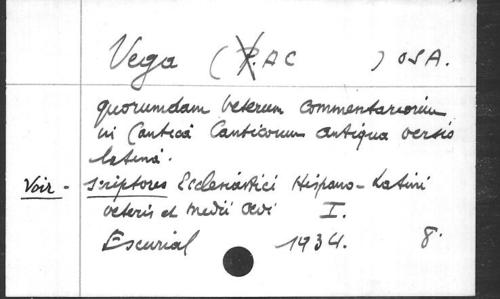 Vega (P. AC ) OSA.
quorumdam veterum commentariorum
in Cantica Canticorum antiqua versio
latina.
Voir - Scriptores Ecclesiastici Hispano-Latini
veteris et medii aevi I.
Escurial 1934. 8.